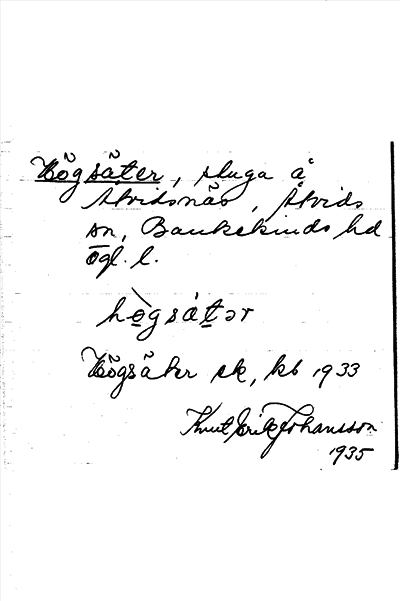 Högsäter, stuga å
Åtvidsnäs, Åtvids
sn, Bankekinds hd
Ögl. l.
hògsátər
Högsäter ek, kb 1933
Knut Erik Johansson
1935